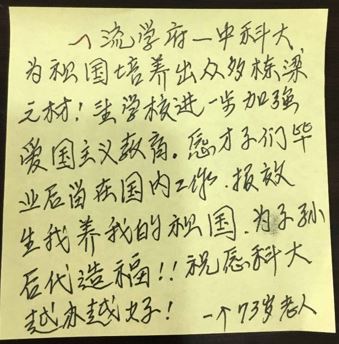 一流学府一中科大,
为祖国培养出众多栋梁
之材！望学校进一步加强
爱国主义教育。愿才子们毕
业后留在国内工作.报效
生我养我的祖国.为子孙
后代造福！！祝愿科大
越办越好！ 一个73岁老人